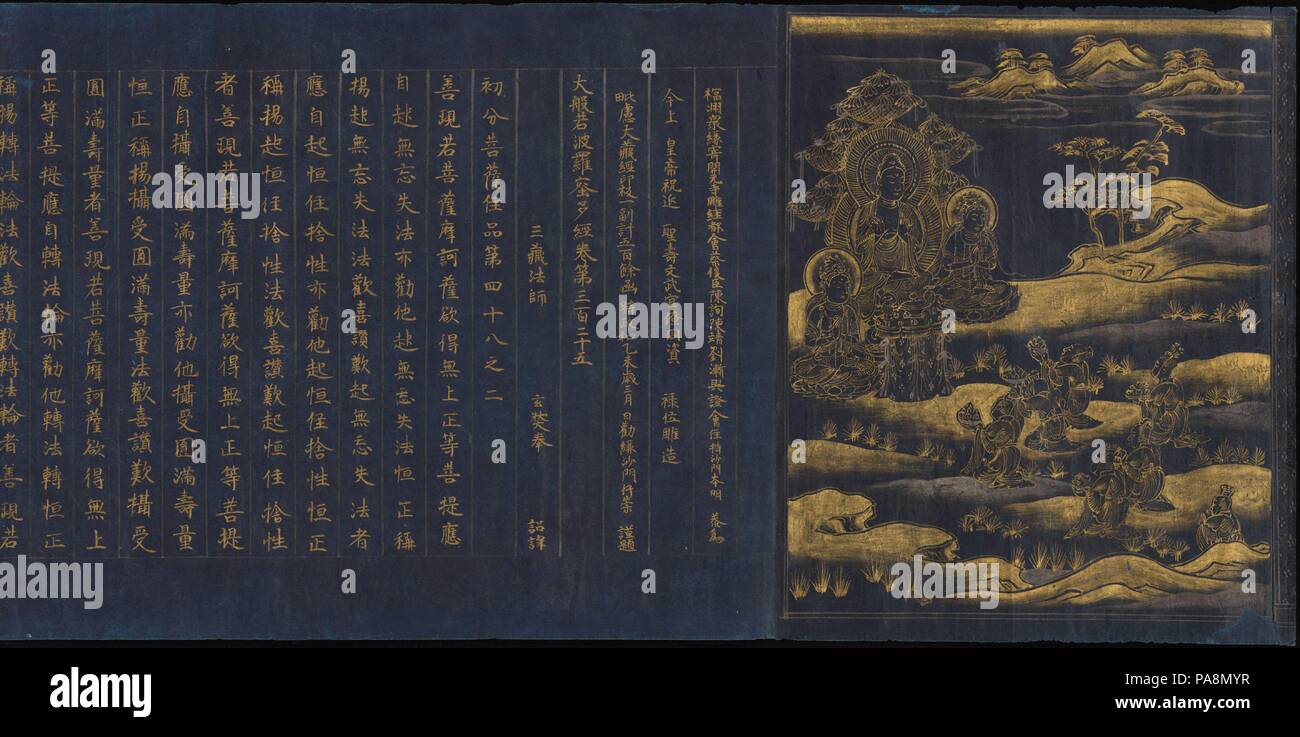 福州眾緣寺開元寺雕經都會蔡俊臣陳詢陳靖劉漸與證會住持沙門本明 恭為
今上 皇帝祝延 聖壽文武官僚資 祿位雕造
毗盧大藏經印板一副計五百餘函 乙未歲 月 日勸緣沙門 謹題
大般若波羅蜜多經卷第三百二十五
三藏法師 玄奘奉 詔譯
初分菩薩住品第四十八之二
善現若菩薩摩訶薩欲得無上正等菩提應
自起無忘失法亦勸他起無忘失法恒正稱
揚起無忘失法法歡喜讚歎起無忘失法者
應自起恒住捨性亦勸他起恒住捨性恒正
稱揚起恒住捨性法歡喜讚歎起恒住捨性
者善現若菩薩摩訶薩欲得無上正等菩提
應自攝受圓滿壽量亦勸他攝受圓滿壽量
恒正稱揚攝受圓滿壽量法歡喜讚歎攝受
圓滿壽量者善現若菩薩摩訶薩欲得無上
正等菩提應自轉法輪亦勸他轉法轉恒正
稱揚轉法輪法歡喜讚歎轉法輪者善現若
alamy
PA8MYR
www.alamy.com